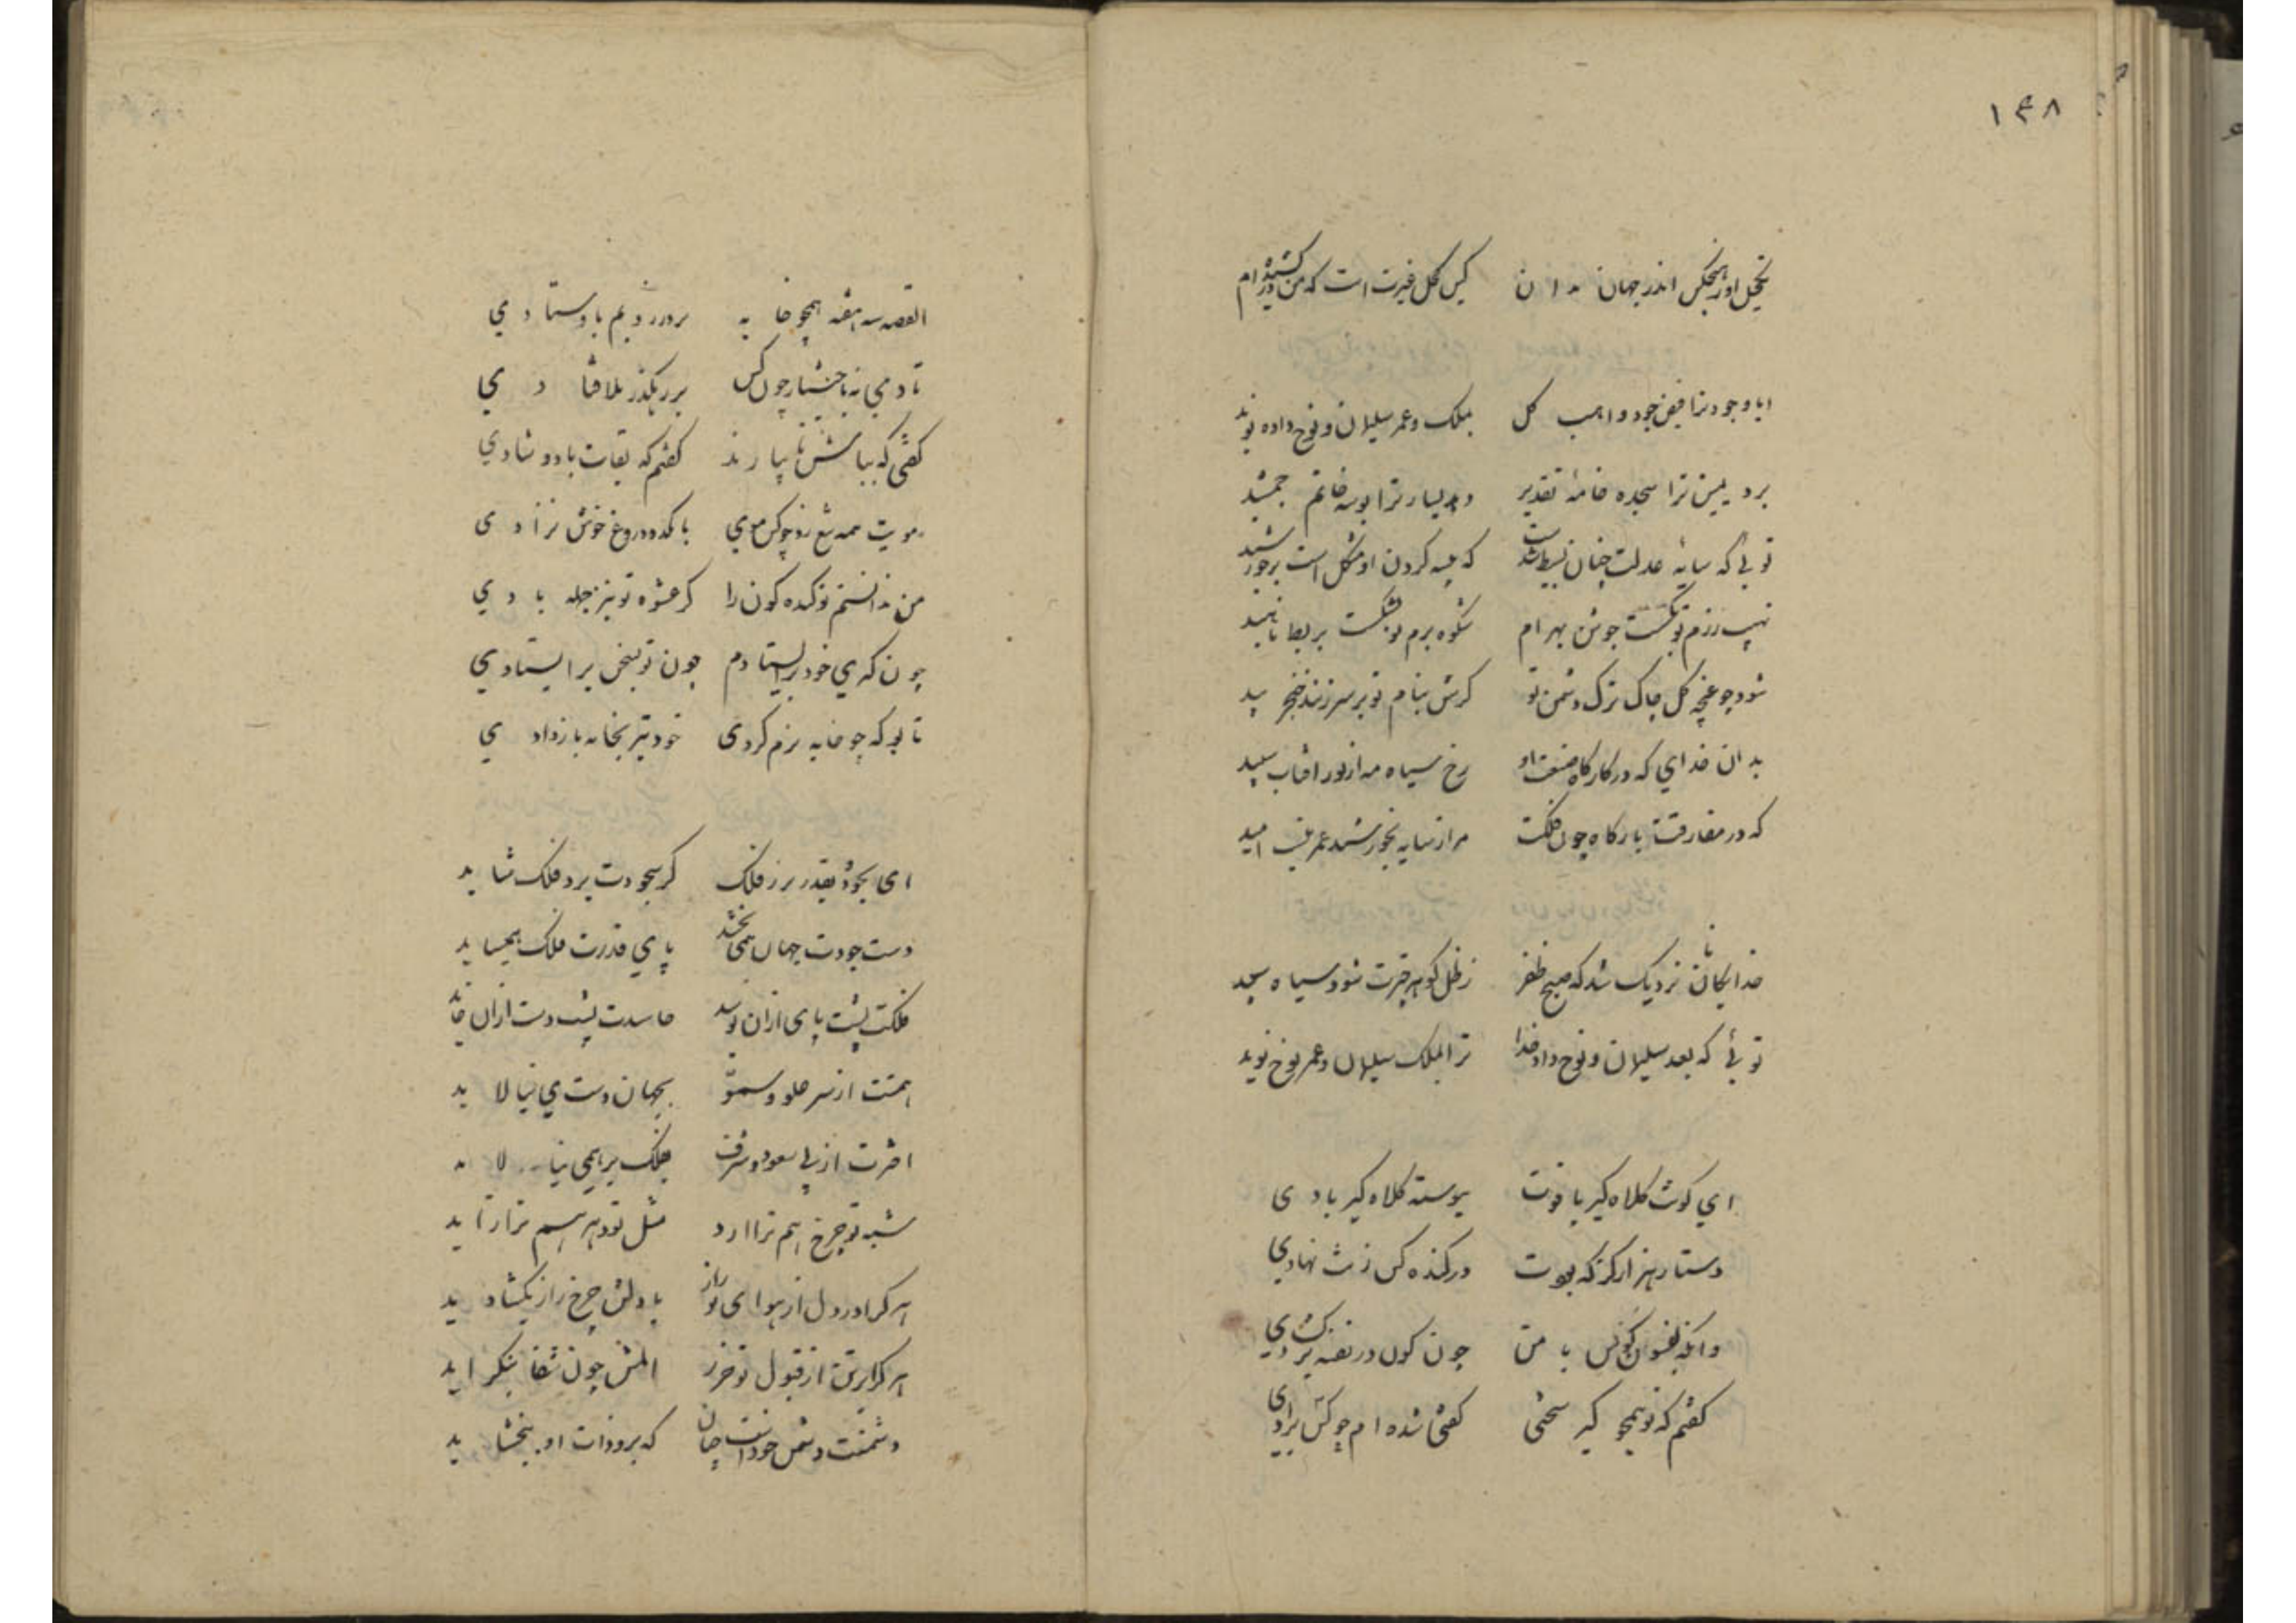 ۱۴۸
اندر جهان مدان کین کحل غیرت است که من درکشیده‌ام
ایا وجود ترا فیض جود واهب کل بملک و عمر سلیمان و نوح داده نوید
برد یمین ترا سجده خامهٔ تقدیر دهد یسار ترا بوسه خاتم جمشید
توئی که سایهٔ عدلت چنان بسیط شدست که کردن او مشکل است بر خورشید
نهیب رزم تو بکسست جوشن بهرام شکوه بزم تو بشکست بربط ناهید
شود چو غنچه کل چاک ترک دشمن تو کرش بنام تو بر سر زنند خنجر بید
بدان خدای که در کارکاه صنعت او رخ سیاه مه از نور افتاب سپید
که در مفارقت بارکاه چون فلکت مرا ز سایه بخورشید عمر نیست امید
خدایکانا نزدیک شد که صبح ظفر ز ظل کوهر چترت شود سیاه سپید
توئی که بعد سلیمان و نوح داد خدا ترا بملک سلیمان و عمر نوح نوید
ای کونت کلاه کیر یافوت پیوسته کلاه کیر بادی
دستار هزار کز که بودت در کنده کس زنت نهادی
وانکه با من چون کون در نفسه برکشادی
کفتم که تو همچو کیر سختی کفتی شده‌ام چو کس برادی
القصه سه هفته همچو خایه بر درزدیم باوستادی
تا دمی نه باختیار چون کس بر رهکذر بلا فتادی
کفتی که بباش تا بیارند کفتم که بقات باد و شادی
مویت همه شغ زد چو کس موی با کده دروغ خوش نزادی
من ندانستم تو کنده کون را کز عشوه تو نیز جمله بادی
چون کیری خود بایستادم چون تو بسخن بر ایستادی
تا بو که چو خایه نرم کردی خود تیز بخایه باز دادی
ای بجود و بقدر برز فلک کر سجودت برد فلک شاید
دست جودت جهان همی بخشد پای قدرت فلک همی‌ساید
فلکت پشت پای ازان بوسد حاسدت پشت دست ازان خاید
همتت از سر علو و سمو بجهان دست می نیالاید
اخترت از پی سعود و شرف بفلک بر همی نیاساید
شبه تو چرخ هم ترا ارد مثل تو دهر هم ترا زاید
هر کرا در دل از هوای تو راز با دلش چرخ راز بکشاید
هر کرا بر تن از قبول تو حرز المش چون شفا بنکزاید
دشمنت دشمن خودست چنان که برو ذات او نبخشاید